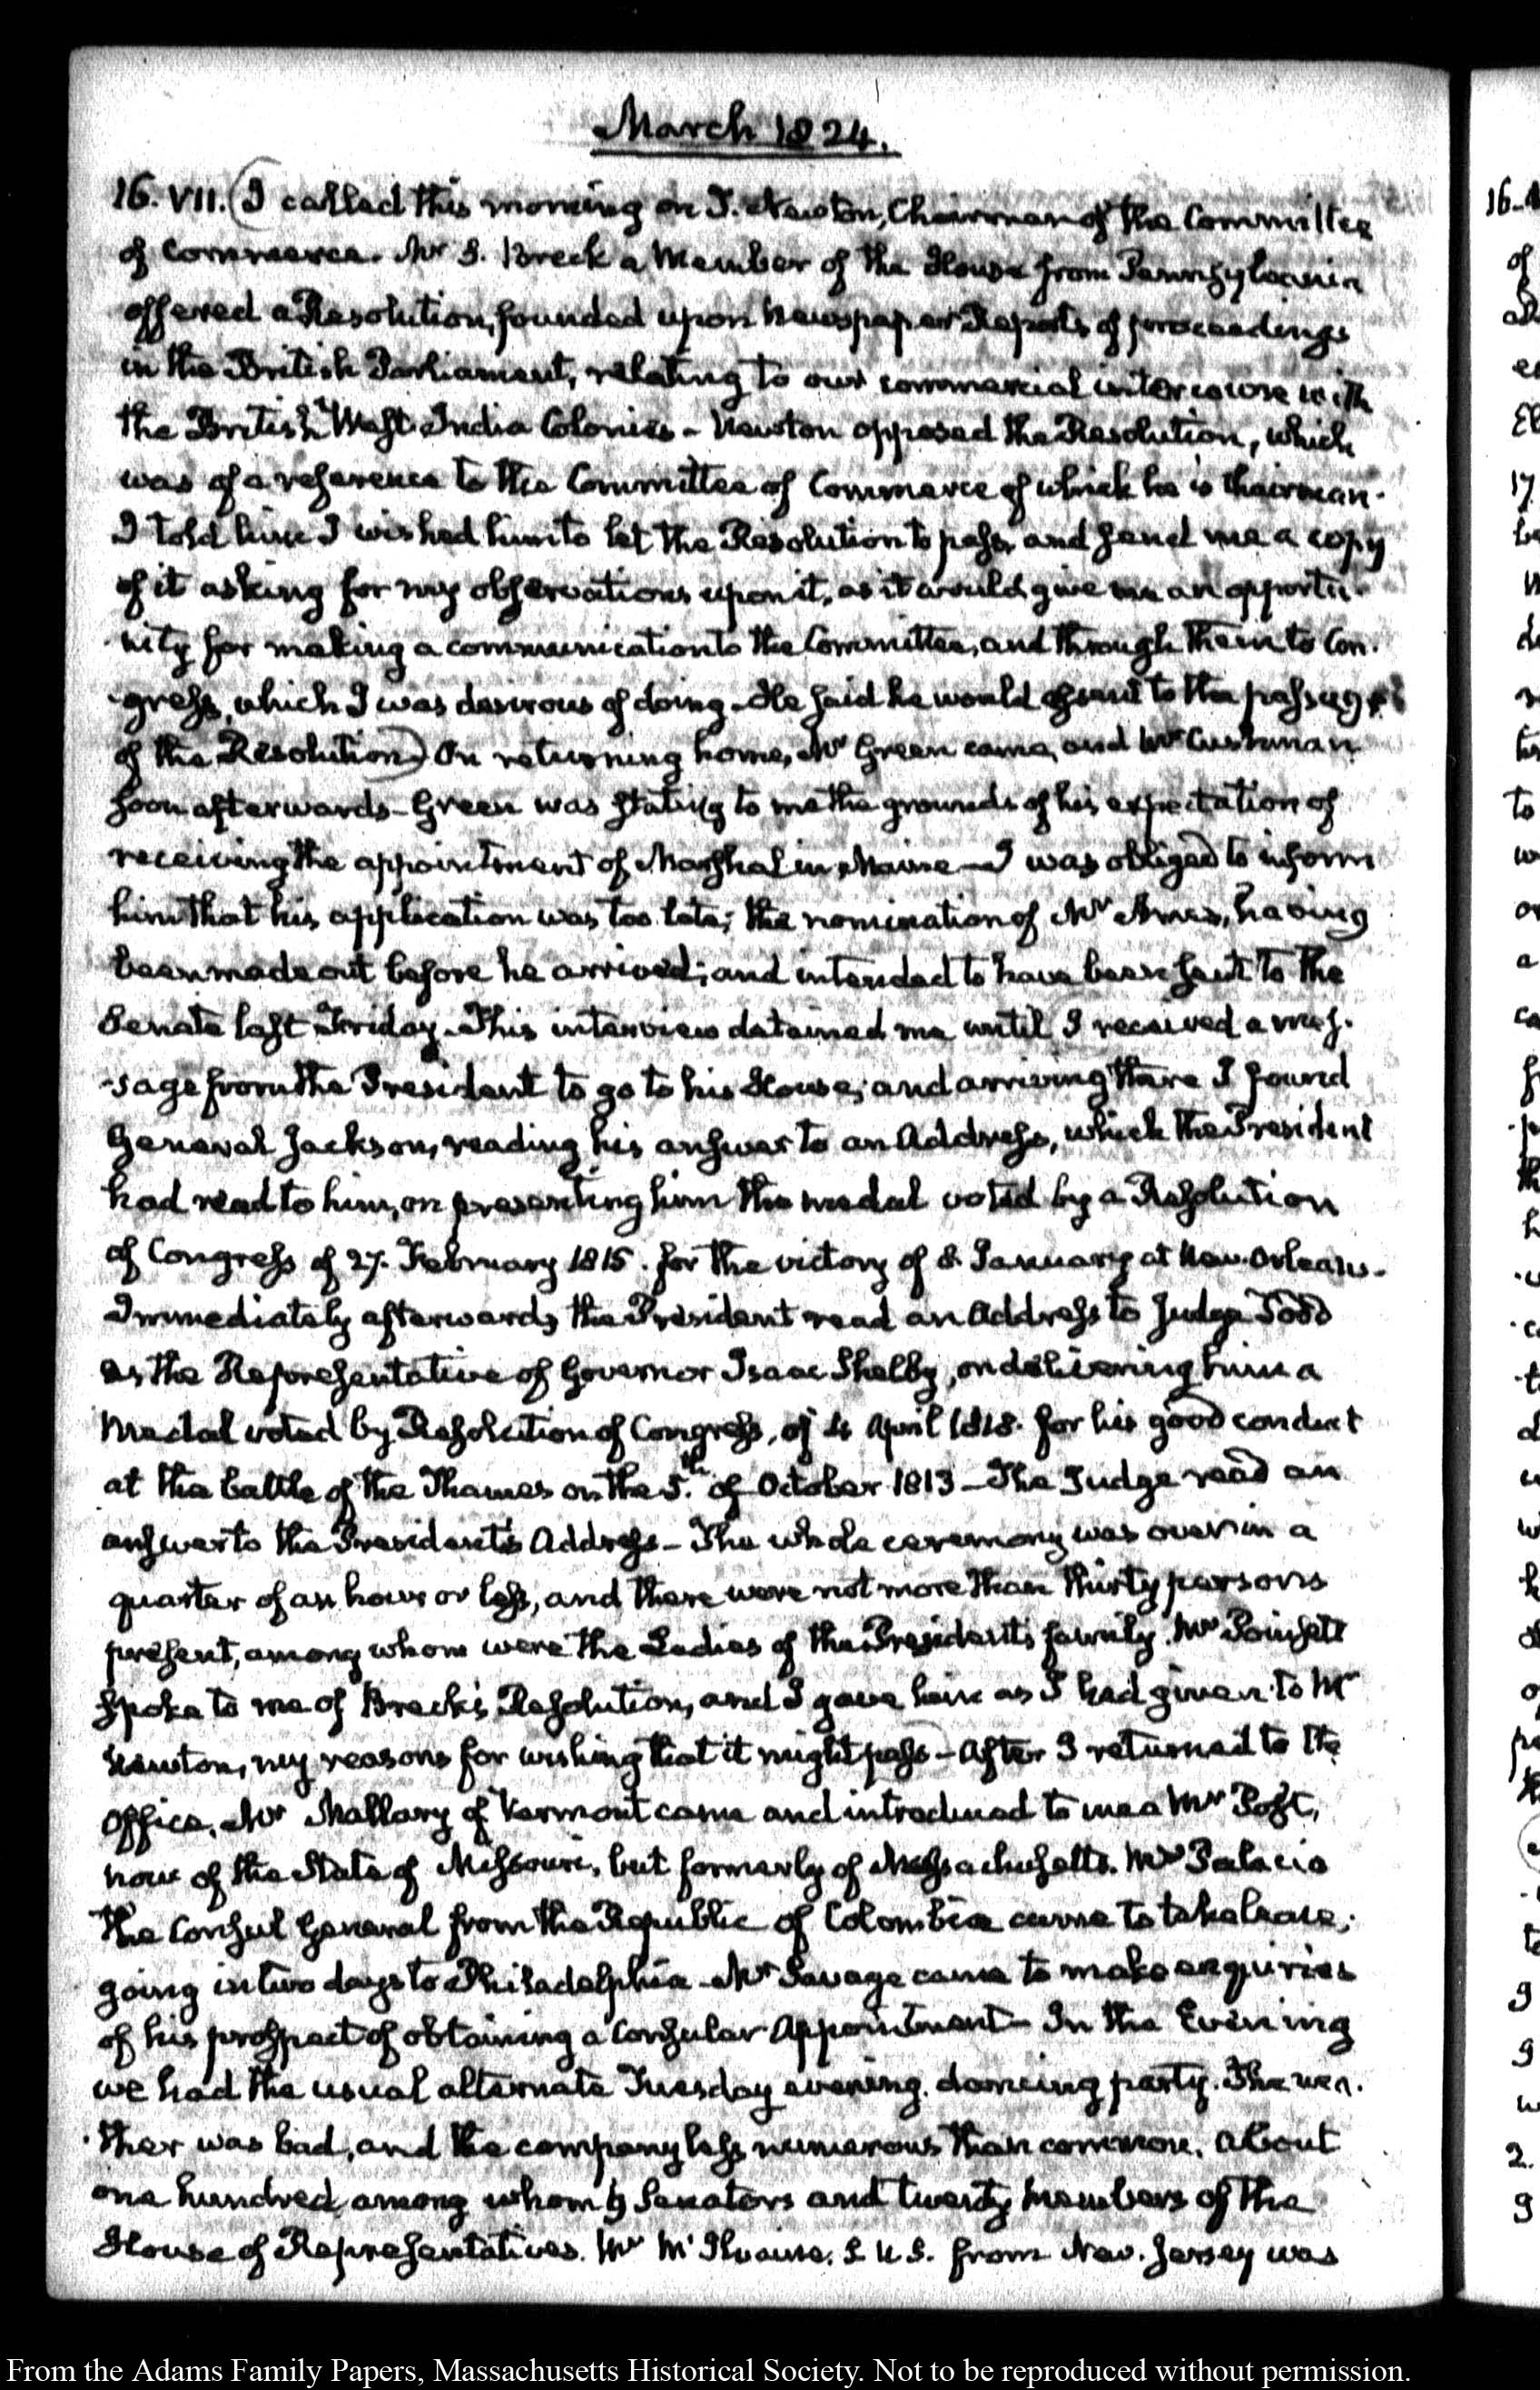 March 1824.
16. VII. (I called this morning on T. Newton, Chairman of the Committee
of Commerce. Mr S. Breck a Member of the House from Pennsylvania
offered a Resolution, founded upon Newspaper Reports of proceedings
in the British Parliament, relating to our commercial intercourse with
the British West-India Colonies - Newton opposed the Resolution, which
was of a reference to the Committee of Commerce of which he is Chairman.
I told him I wished him to let the Resolution to pass, and send me a copy
of it asking for my observations upon it, as it would give me an opportu-
-nity for making a communication to the Committee, and through them to Con-
-gress, which I was desirous of doing - He said he would assent to the passage
of the Resolution) On returning home, Mr Green came, and Mr Cushman
soon afterwards - Green was stating to me the grounds of his expectation of
receiving the appointment of Marshal in Maine - I was obliged to inform
him that his application was too late; the nomination of Mr Ames, having
been made out before he arrived; and intended to have been sent to the
Senate last Friday. This interview detained me until I received a mes-
-sage from the President to go to his House; and arriving there I found
General Jackson, reading his answer to an Address, which the President
had read to him, on presenting him the medal voted by a Resolution
of Congress of 27. February 1815. for the victory of 8. January at New-Orleans.
Immediately afterwards the President read an Address to Judge Todd
as the Representative of Governor Isaac Shelby, on delivering him a
Medal voted by Resolution of Congress, of 4 April 1818. for his good conduct
at the battle of the Thames on the 5.th of October 1813 - The Judge read an
answer to the President's Address - The whole ceremony was over in a
quarter of an hour or less, and there were not more than thirty persons
present, among whom were the Ladies of the President's family. Mr Poinsett
spoke to me of Breck's Resolution, and I gave him as I had given to Mr
Newton, my reasons for wishing that it might pass - After I returned to the
Office, Mr Mallary of Vermont came and introduced to me a Mr Post,
now of the State of Missouri, but formerly of Massachusetts. Mr Palacio
the Consul General from the Republic of Colombia came to take leave;
going in two days to Philadelphia - Mr Savage came to make enquiries
of his prospect of obtaining a Consular Appointment - In the Evening
we had the usual alternate Tuesday evening dancing party. The wea-
-ther was bad, and the company less numerous than common. About
one hundred, among whom Senators and twenty Members of the
House of Representatives. Mr McIlvaine. S. U.S. from New-Jersey was
16-
of
17
to
From the Adams Family Papers, Massachusetts Historical Society. Not to be reproduced without permission.